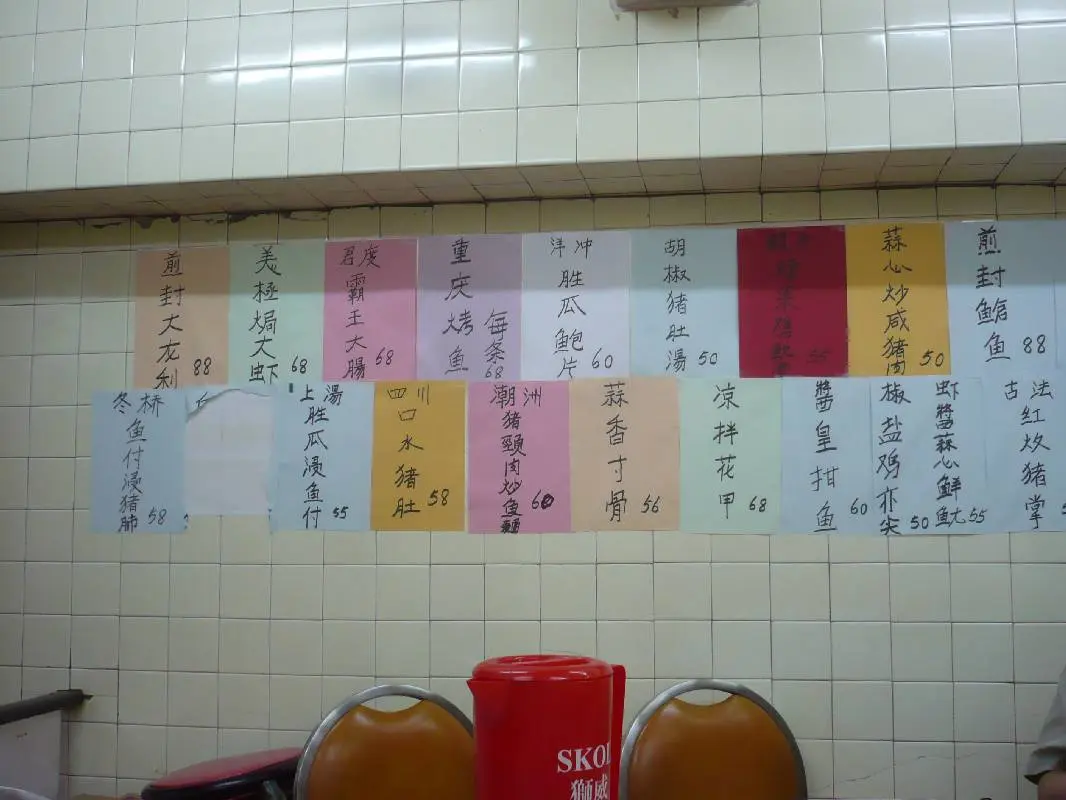 煎封大龙利 88
美極焗大虾 68
君度霸王大腸 68
重庆烤鱼 每条 68
洋冲胜瓜鲍片 60
胡椒猪肚湯 50
55
蒜心炒咸猪肉 50
煎封鲳鱼 88
冬桥鱼付浸猪肺 58
上湯胜瓜浸鱼付 55
四川口水猪肚 58
潮洲猪頸肉炒鱼麵 60
蒜香寸骨 56
凉拌花甲 68
醬皇拑鱼 60
椒盐鸡亦尖 50
虾醬蒜心鲜魷 55
古法红炆猪掌
SKO
獅威